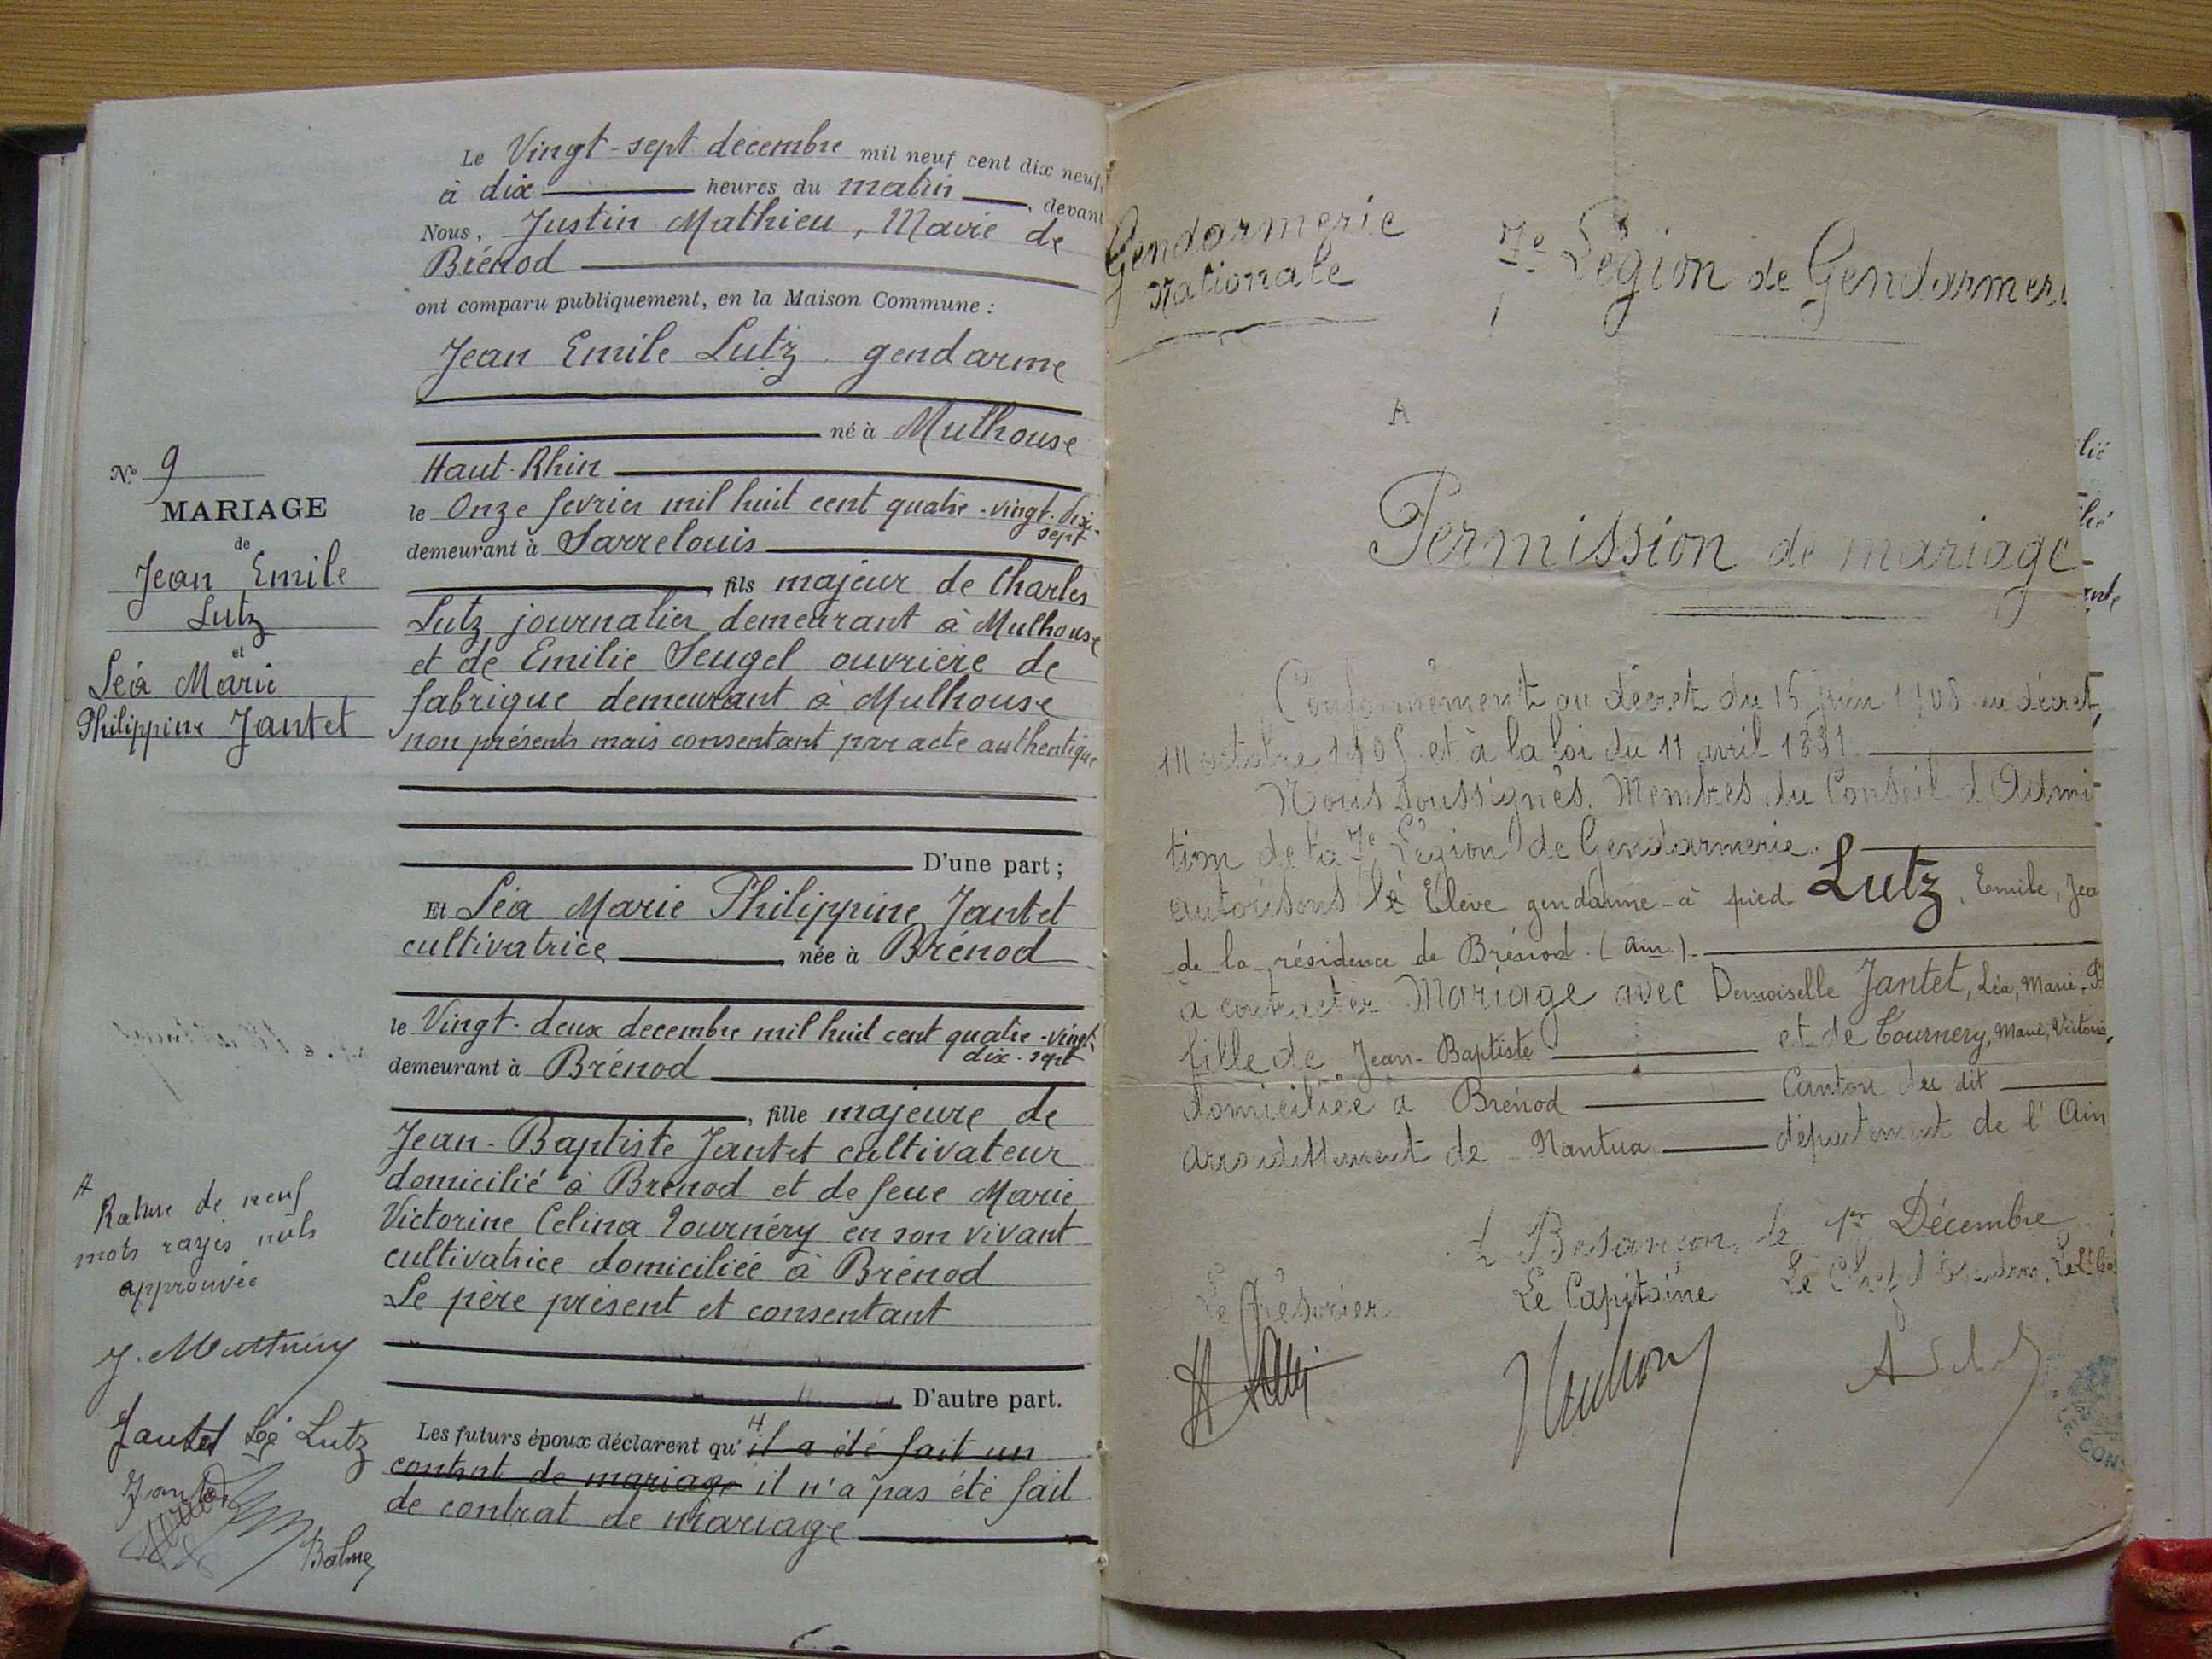 Le Vingt-sept decembre mil neuf cent dix neuf,
à dix heures du matin, devant
Nous, Justin Mathieu, Maire de
Brénod
ont comparu publiquement, en la Maison Commune :
Jean Emile Lutz gendarme
né à Mulhouse
Haut-Rhin
le Onze fevrier mil huit cent quatre-vingt-dix-
sept
demeurant à Sarrelouis
fils majeur de Charles
Lutz journalier demeurant à Mulhouse
et de Emilie Seugel ouvrière de
fabrique demeurant à Mulhouse
non présents mais consentant par acte authentique
D'une part ;
Et Léa Marie Philippine Jantet
cultivatrice née à Brénod
le Vingt-deux decembre mil huit cent quatre-vingt-
dix-sept
demeurant à Brénod
, fille majeure de
Jean-Baptiste Jantet cultivateur
domicilié à Brénod et de feue Marie
Victorine Celina Tournéry en son vivant
cultivatrice domiciliée à Brénod
Le père présent et consentant
D'autre part.
Les futurs époux déclarent qu' il a été fait un
contrat de mariage il n'a pas été fait
de contrat de mariage
N° 9
MARIAGE
de
Jean Emile
Lutz
et
Léa Marie
Philippine Jantet
Rature de neuf
mots rayés nuls
approuvée
Jantet Léa Lutz
Balme
Gendarmerie
Nationale
7e Légion de Gendarmeri
A
Permission de mariage
Conformément au décret du 15 juin 1908 au décret,
octobre 1905 et à la loi du 11 avril 1831
Nous soussignés, Membres du Conseil d'Admi
tion de la 7e Légion de Gendarmerie.
autorisons le Elève gendarme à pied Lutz, Emile, Jea
de la résidence de Brénod (Ain).
à contracter Mariage avec Demoiselle Jantet, Léa, Marie, P
fille de Jean-Baptiste et de Tournery, Marie, Victorine,
domiciliée à Brénod Canton du dit
arrondissement de Nantua département de l'Ain
à Besançon, le 1er Décembre
Le Trésorier Le Capitaine Le Chef d'Escadron